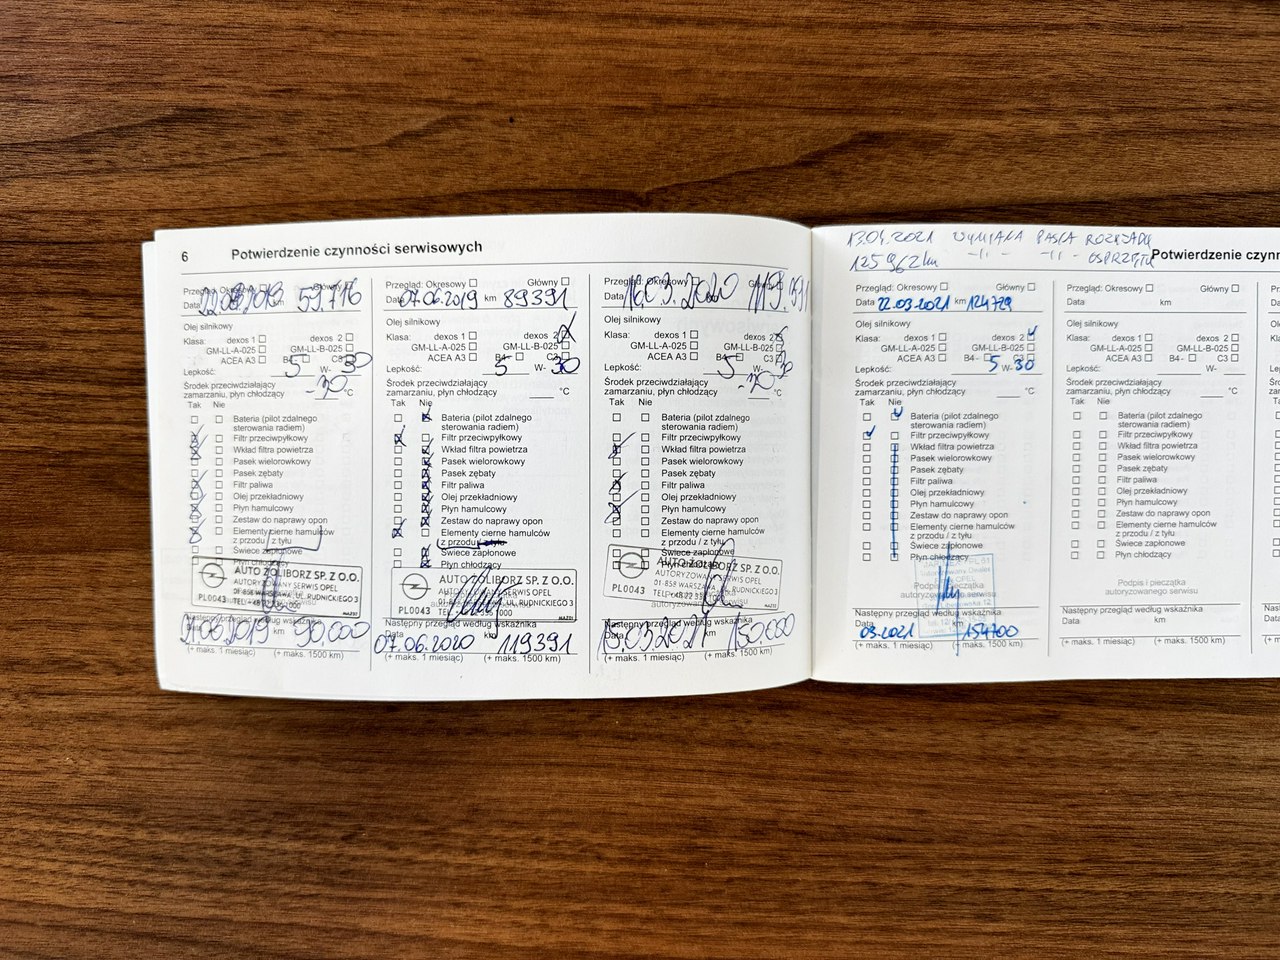 6 Potwierdzenie czynności serwisowych
Przegląd: Okresowy Główny
Data km 59716
Olej silnikowy
Klasa: dexos 1 dexos 2
GM-LL-A-025 GM-LL-B-025
ACEA A3 B4- C3
Lepkość: 5 W- 30
Środek przeciwdziałający
zamarzaniu, płyn chłodzący -30 °C
Tak Nie
Bateria (pilot zdalnego
sterowania radiem)
Filtr przeciwpyłkowy
Wkład filtra powietrza
Pasek wielorowkowy
Pasek zębaty
Filtr paliwa
Olej przekładniowy
Płyn hamulcowy
Zestaw do naprawy opon
Elementy cierne hamulców
z przodu / z tyłu
Świece zapłonowe
AUTO ŻOLIBORZ SP. Z O.O.
AUTORYZOWANY SERWIS OPEL
01-858 WARSZAWA, UL. RUDNICKIEGO 3
PL0043
Następny przegląd według wskaźnika
Data km 90000
(+ maks. 1 miesiąc) (+ maks. 1500 km)
Przegląd: Okresowy Główny
Data 07.06.2019 km 89391
Olej silnikowy
Klasa: dexos 1 dexos 2
GM-LL-A-025 GM-LL-B-025
ACEA A3 B4- C3
Lepkość: 5 W- 30
Środek przeciwdziałający
zamarzaniu, płyn chłodzący °C
Tak Nie
Bateria (pilot zdalnego
sterowania radiem)
Filtr przeciwpyłkowy
Wkład filtra powietrza
Pasek wielorowkowy
Pasek zębaty
Filtr paliwa
Olej przekładniowy
Płyn hamulcowy
Zestaw do naprawy opon
Elementy cierne hamulców
z przodu / z tyłu
Świece zapłonowe
Płyn chłodzący
AUTO ŻOLIBORZ SP. Z O.O.
AUTORYZOWANY SERWIS OPEL
01-858 WARSZAWA, UL. RUDNICKIEGO 3
PL0043
Następny przegląd według wskaźnika
Data 07.06.2020 km 119391
(+ maks. 1 miesiąc) (+ maks. 1500 km)
Przegląd: Okresowy Główny
Data km
Olej silnikowy
Klasa: dexos 1 dexos 2
GM-LL-A-025 GM-LL-B-025
ACEA A3 B4- C3
Lepkość: 5 W- 30
Środek przeciwdziałający
zamarzaniu, płyn chłodzący °C
Tak Nie
Bateria (pilot zdalnego
sterowania radiem)
Filtr przeciwpyłkowy
Wkład filtra powietrza
Pasek wielorowkowy
Pasek zębaty
Filtr paliwa
Olej przekładniowy
Płyn hamulcowy
Zestaw do naprawy opon
Elementy cierne hamulców
z przodu / z tyłu
Świece zapłonowe
Płyn chłodzący
PL0043
Następny przegląd według wskaźnika
Data km 150.000
(+ maks. 1 miesiąc) (+ maks. 1500 km)
13.04.2021 WYMIANA PASKA ROZRZĄDU
125962km -11- -11- OSPRZĘTU
Potwierdzenie czynn
Przegląd: Okresowy Główny
Data 22.03.2021 km 124729
Olej silnikowy
Klasa: dexos 1 dexos 2
GM-LL-A-025 GM-LL-B-025
ACEA A3 B4- C3
Lepkość: 5 W- 30
Środek przeciwdziałający
zamarzaniu, płyn chłodzący °C
Tak Nie
Bateria (pilot zdalnego
sterowania radiem)
Filtr przeciwpyłkowy
Wkład filtra powietrza
Pasek wielorowkowy
Pasek zębaty
Filtr paliwa
Olej przekładniowy
Płyn hamulcowy
Zestaw do naprawy opon
Elementy cierne hamulców
z przodu / z tyłu
Świece zapłonowe
Płyn chłodzący
Podpis i pieczątka
autoryzowanego serwisu
Następny przegląd według wskaźnika
Data 03.2021 km 154700
(+ maks. 1 miesiąc) (+ maks. 1500 km)
Przegląd: Okresowy Główny
Data km
Olej silnikowy
Klasa: dexos 1 dexos 2
GM-LL-A-025 GM-LL-B-025
ACEA A3 B4- C3
Lepkość: W-
Środek przeciwdziałający
zamarzaniu, płyn chłodzący °C
Tak Nie
Bateria (pilot zdalnego
sterowania radiem)
Filtr przeciwpyłkowy
Wkład filtra powietrza
Pasek wielorowkowy
Pasek zębaty
Filtr paliwa
Olej przekładniowy
Płyn hamulcowy
Zestaw do naprawy opon
Elementy cierne hamulców
z przodu / z tyłu
Świece zapłonowe
Płyn chłodzący
Podpis i pieczątka
autoryzowanego serwisu
Następny przegląd według wskaźnika
Data km
(+ maks. 1 miesiąc) (+ maks. 1500 km)